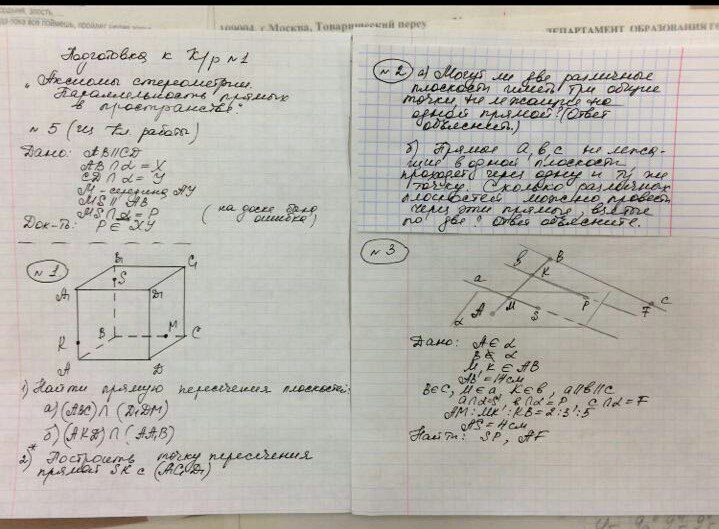 109004, г. Москва, Товарищеский переу
ДЕПАРТАМЕНТ ОБРАЗОВАНИЯ Г
Подготовка к К/р №1
"Аксиомы стереометрии.
Параллельность прямых
в пространстве"
№5 (из кл. работы)
Дано: AB∥CD
AB ∩ α = X
CD ∩ α = Y
M - середина AY
MS ∥ AB
MS ∩ α = P
(на доске была ошибка)
Док-ть: P ∈ XY
№1
B₁
C₁
S
A₁
D₁
B
M
C
K
A
D
1) Найти прямую пересечения плоскостей:
а) (ABC) ∩ (D₁DM)
б) (AKD) ∩ (AA₁B)
2)* Построить точку пересечения
прямой SK с (AC₁D₁)
№2 а) Могут ли две различные
плоскости иметь три общие
точки, не лежащие на
одной прямой? (Ответ
объяснить.)
б) Прямые a, b, c не лежа-
щие в одной плоскости
проходят через одну и ту же
точку. Сколько различных
плоскостей можно провести
через эти прямые, взятые
по две? Ответ объясните.
№3
b
B
K
a
A
M
S
P
F
c
α
Дано: A ∈ α
B ∉ α
M, K ∈ AB
AB = 14 см
B ∈ c, M ∈ a, K ∈ b, a∥b∥c
a∩α=S, b∩α=P c∩α=F
AM:MK:KB=2:3:5
AS = 4 см
Найти: SP, AF